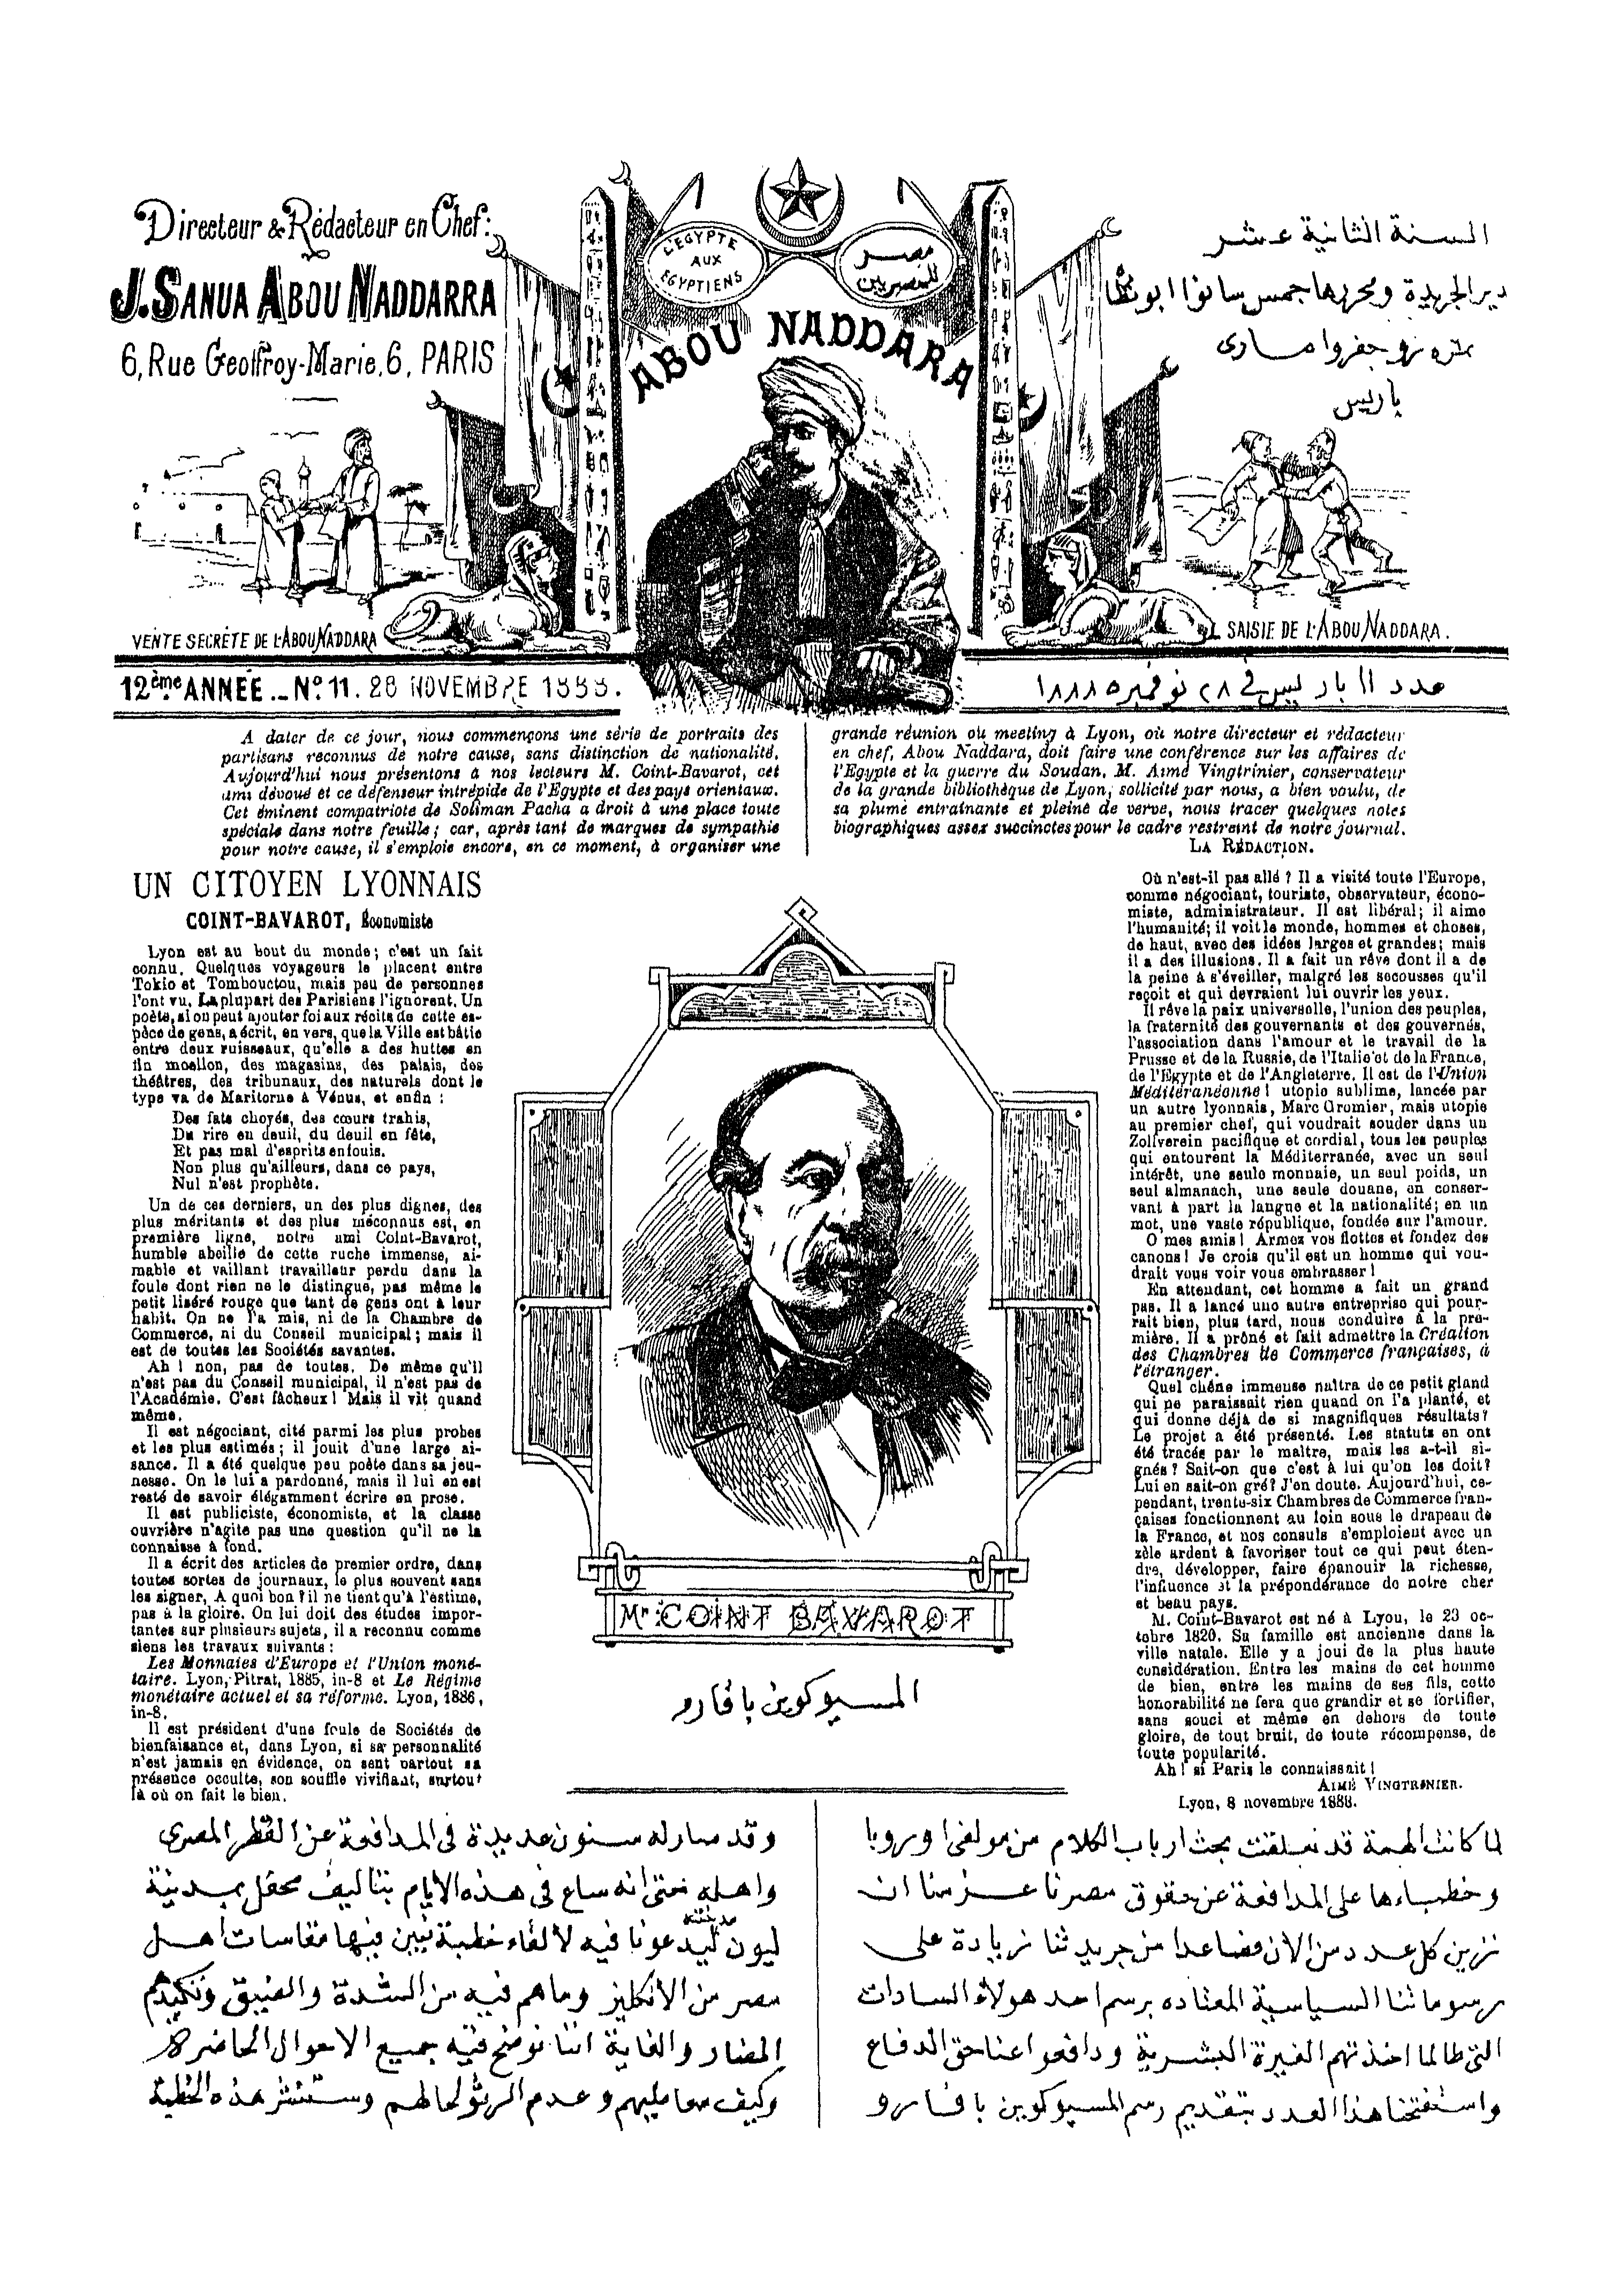 Directeur & Rédacteur en Chef:
J. SANUA ABOU NADDARRA
6, Rue Geoffroy-Marie, 6, PARIS
L'EGYPTE
AUX
EGYPTIENS
مصر
للمصريين
ABOU NADDARA
السنة الثانية عشر
مدير الجريدة ومحررها جمس سانوا ابو نظارة
نمره ٦ رو جفروا ماري
باريس
VENTE SECRÈTE DE L'ABOU NADDARA
SAISIE DE L'ABOU NADDARA.
12ème ANNÉE _ No. 11. 28 NOVEMBRE 1888.
عدد ١١ باريس في ٢٨ نوفمبر ١٨٨٨
A dater de ce jour, nous commençons une série de portraits des
partisans reconnus de notre cause, sans distinction de nationalité.
Aujourd'hui nous présentons à nos lecteurs M. Coint-Bavarot, cet
ami dévoué et ce défenseur intrépide de l'Egypte et des pays orientaux.
Cet éminent compatriote de Soliman Pacha a droit à une place toute
spéciale dans notre feuille; car, après tant de marques de sympathie
pour notre cause, il s'emploie encore, en ce moment, à organiser une
grande réunion ou meeting à Lyon, où notre directeur et rédacteur
en chef, Abou Naddara, doit faire une conférence sur les affaires de
l'Egypte et la guerre du Soudan. M. Aimé Vingtrinier, conservateur
de la grande bibliothèque de Lyon, sollicité par nous, a bien voulu, de
sa plume entraînante et pleine de verve, nous tracer quelques notes
biographiques assez succinctes pour le cadre restreint de notre journal.
LA RÉDACTION.
UN CITOYEN LYONNAIS
COINT-BAVAROT, Économiste
Lyon est au bout du monde; c'est un fait
connu. Quelques voyageurs le placent entre
Tokio et Tombouctou, mais peu de personnes
l'ont vu. La plupart des Parisiens l'ignorent. Un
poète, si on peut ajouter foi aux récits de cette es-
pèce de gens, a écrit, en vers, que la Ville est bâtie
entre deux ruisseaux, qu'elle a des huttes en
fin moellon, des magasins, des palais, des
théâtres, des tribunaux, des naturels dont le
type va de Maritorne à Vénus, et enfin :
Des fats choyés, des cœurs trahis,
Du rire en deuil, du deuil en fête,
Et pas mal d'esprits enfouis.
Non plus qu'ailleurs, dans ce pays,
Nul n'est prophète.
Un de ces derniers, un des plus dignes, des
plus méritants et des plus méconnus est, en
première ligne, notre ami Coint-Bavarot,
humble abeille de cette ruche immense, ai-
mable et vaillant travailleur perdu dans la
foule dont rien ne le distingue, pas même le
petit liséré rouge que tant de gens ont à leur
habit. On ne l'a mis, ni de la Chambre de
Commerce, ni du Conseil municipal; mais il
est de toutes les Sociétés savantes.
Ah! non, pas de toutes. De même qu'il
n'est pas du Conseil municipal, il n'est pas de
l'Académie. C'est fâcheux! Mais il vit quand
même.
Il est négociant, cité parmi les plus probes
et les plus estimés; il jouit d'une large ai-
sance. Il a été quelque peu poète dans sa jeu-
nesse. On le lui a pardonné, mais il lui en est
resté de savoir élégamment écrire en prose.
Il est publiciste, économiste, et la classe
ouvrière n'agite pas une question qu'il ne la
connaisse à fond.
Il a écrit des articles de premier ordre, dans
toutes sortes de journaux, le plus souvent sans
les signer. A quoi bon? il ne tient qu'à l'estime,
pas à la gloire. On lui doit des études impor-
tantes sur plusieurs sujets, il a reconnu comme
siens les travaux suivants :
Les Monnaies d'Europe et l'Union moné-
taire. Lyon, Pitrat, 1885, in-8 et Le Régime
monétaire actuel et sa réforme. Lyon, 1886,
in-8.
Il est président d'une foule de Sociétés de
bienfaisance et, dans Lyon, si sa personnalité
n'est jamais en évidence, on sent partout sa
présence occulte, son souffle vivifiant, surtout
là où on fait le bien.
Mr COINT BAVAROT
المسيو كوين بافارو
Où n'est-il pas allé? Il a visité toute l'Europe,
comme négociant, touriste, observateur, écono-
miste, administrateur. Il est libéral; il aime
l'humanité; il voit le monde, hommes et choses,
de haut, avec des idées larges et grandes; mais
il a des illusions. Il a fait un rêve dont il a de
la peine à s'éveiller, malgré les secousses qu'il
reçoit et qui devraient lui ouvrir les yeux.
Il rêve la paix universelle, l'union des peuples,
la fraternité des gouvernants et des gouvernés,
l'association dans l'amour et le travail de la
Prusse et de la Russie, de l'Italie et de la France,
de l'Egypte et de l'Angleterre. Il est de l'Union
Méditeranéenne! utopie sublime, lancée par
un autre lyonnais, Marc Gromier, mais utopie
au premier chef, qui voudrait souder dans un
Zollverein pacifique et cordial, tous les peuples
qui entourent la Méditerranée, avec un seul
intérêt, une seule monnaie, un seul poids, un
seul almanach, une seule douane, en conser-
vant à part la langue et la nationalité; en un
mot, une vaste république, fondée sur l'amour.
O mes amis! Armez vos flottes et fondez des
canons! Je crois qu'il est un homme qui vou-
drait vous voir vous embrasser!
En attendant, cet homme a fait un grand
pas. Il a lancé une autre entreprise qui pour-
rait bien, plus tard, nous conduire à la pre-
mière. Il a prôné et fait admettre la Création
des Chambres de Commerce françaises, à
l'étranger.
Quel chêne immense naîtra de ce petit gland
qui ne paraissait rien quand on l'a planté, et
qui donne déjà de si magnifiques résultats?
Le projet a été présenté. Les statuts en ont
été tracés par le maître, mais les a-t-il si-
gnés? Sait-on que c'est à lui qu'on les doit?
Lui en sait-on gré? J'en doute. Aujourd'hui, ce-
pendant, trente-six Chambres de Commerce fran-
çaises fonctionnent au loin sous le drapeau de
la France, et nos consuls s'emploient avec un
zèle ardent à favoriser tout ce qui peut éten-
dre, développer, faire épanouir la richesse,
l'influence et la prépondérance de notre cher
et beau pays.
M. Coint-Bavarot est né à Lyon, le 23 oc-
tobre 1820. Sa famille est ancienne dans la
ville natale. Elle y a joui de la plus haute
considération. Entre les mains de cet homme
de bien, entre les mains de ses fils, cette
honorabilité ne fera que grandir et se fortifier,
sans souci et même en dehors de toute
gloire, de tout bruit, de toute récompense, de
toute popularité.
Ah! si Paris le connaissait!
AIMÉ VINGTRINIER.
Lyon, 8 novembre 1888.
لما كانت الهمة قد تعلقت بحث ارباب الكلام من مولفي اوروبا
وخطباءها على المدافعة عن حقوق مصرنا عزمنا ان
نزين كل عدد من الان فصاعدا من جريدتنا زيادة على
رسوماتنا السياسية المعتاده برسم احد هولاء السادات
التي طالما اخذتهم الغيرة البشرية ودافعوا عنا حق الدفاع
واستفتحنا هذا العدد بتقديم رسم المسيو كوين بافارو
وقد صار له سنون عديدة في المدافعة عن القطر المصري
واهله حتى انه ساع في هذه الايام بتاليف محفل بمدينة
ليون مدينته ليدعونا فيه لالقاء خطبة نبين فيها مقاسات اهل
مصر من الانكليز وما هم فيه من الشدة والضيق وتكبدهم
المضار والغاية اننا نوضح فيه جميع الاحوال الحاضرة
وكيف معامليهم وعدم الرثو لحالهم وستنشر هذه الخطبة